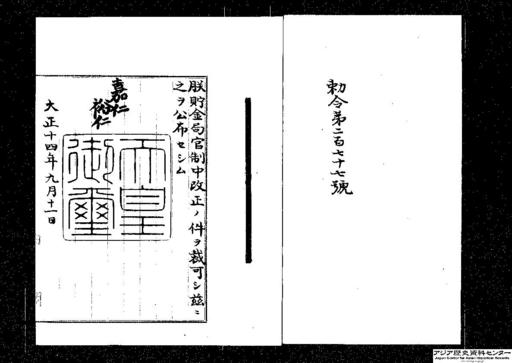 勅令第二百七十七號
朕貯金局官制中改正ノ件ヲ裁可シ茲ニ
之ヲ公布セシム
嘉仁
裕仁
天皇
御璽
大正十四年九月十一日
アジア歴史資料センター
Japan Center for Asian Historical Records